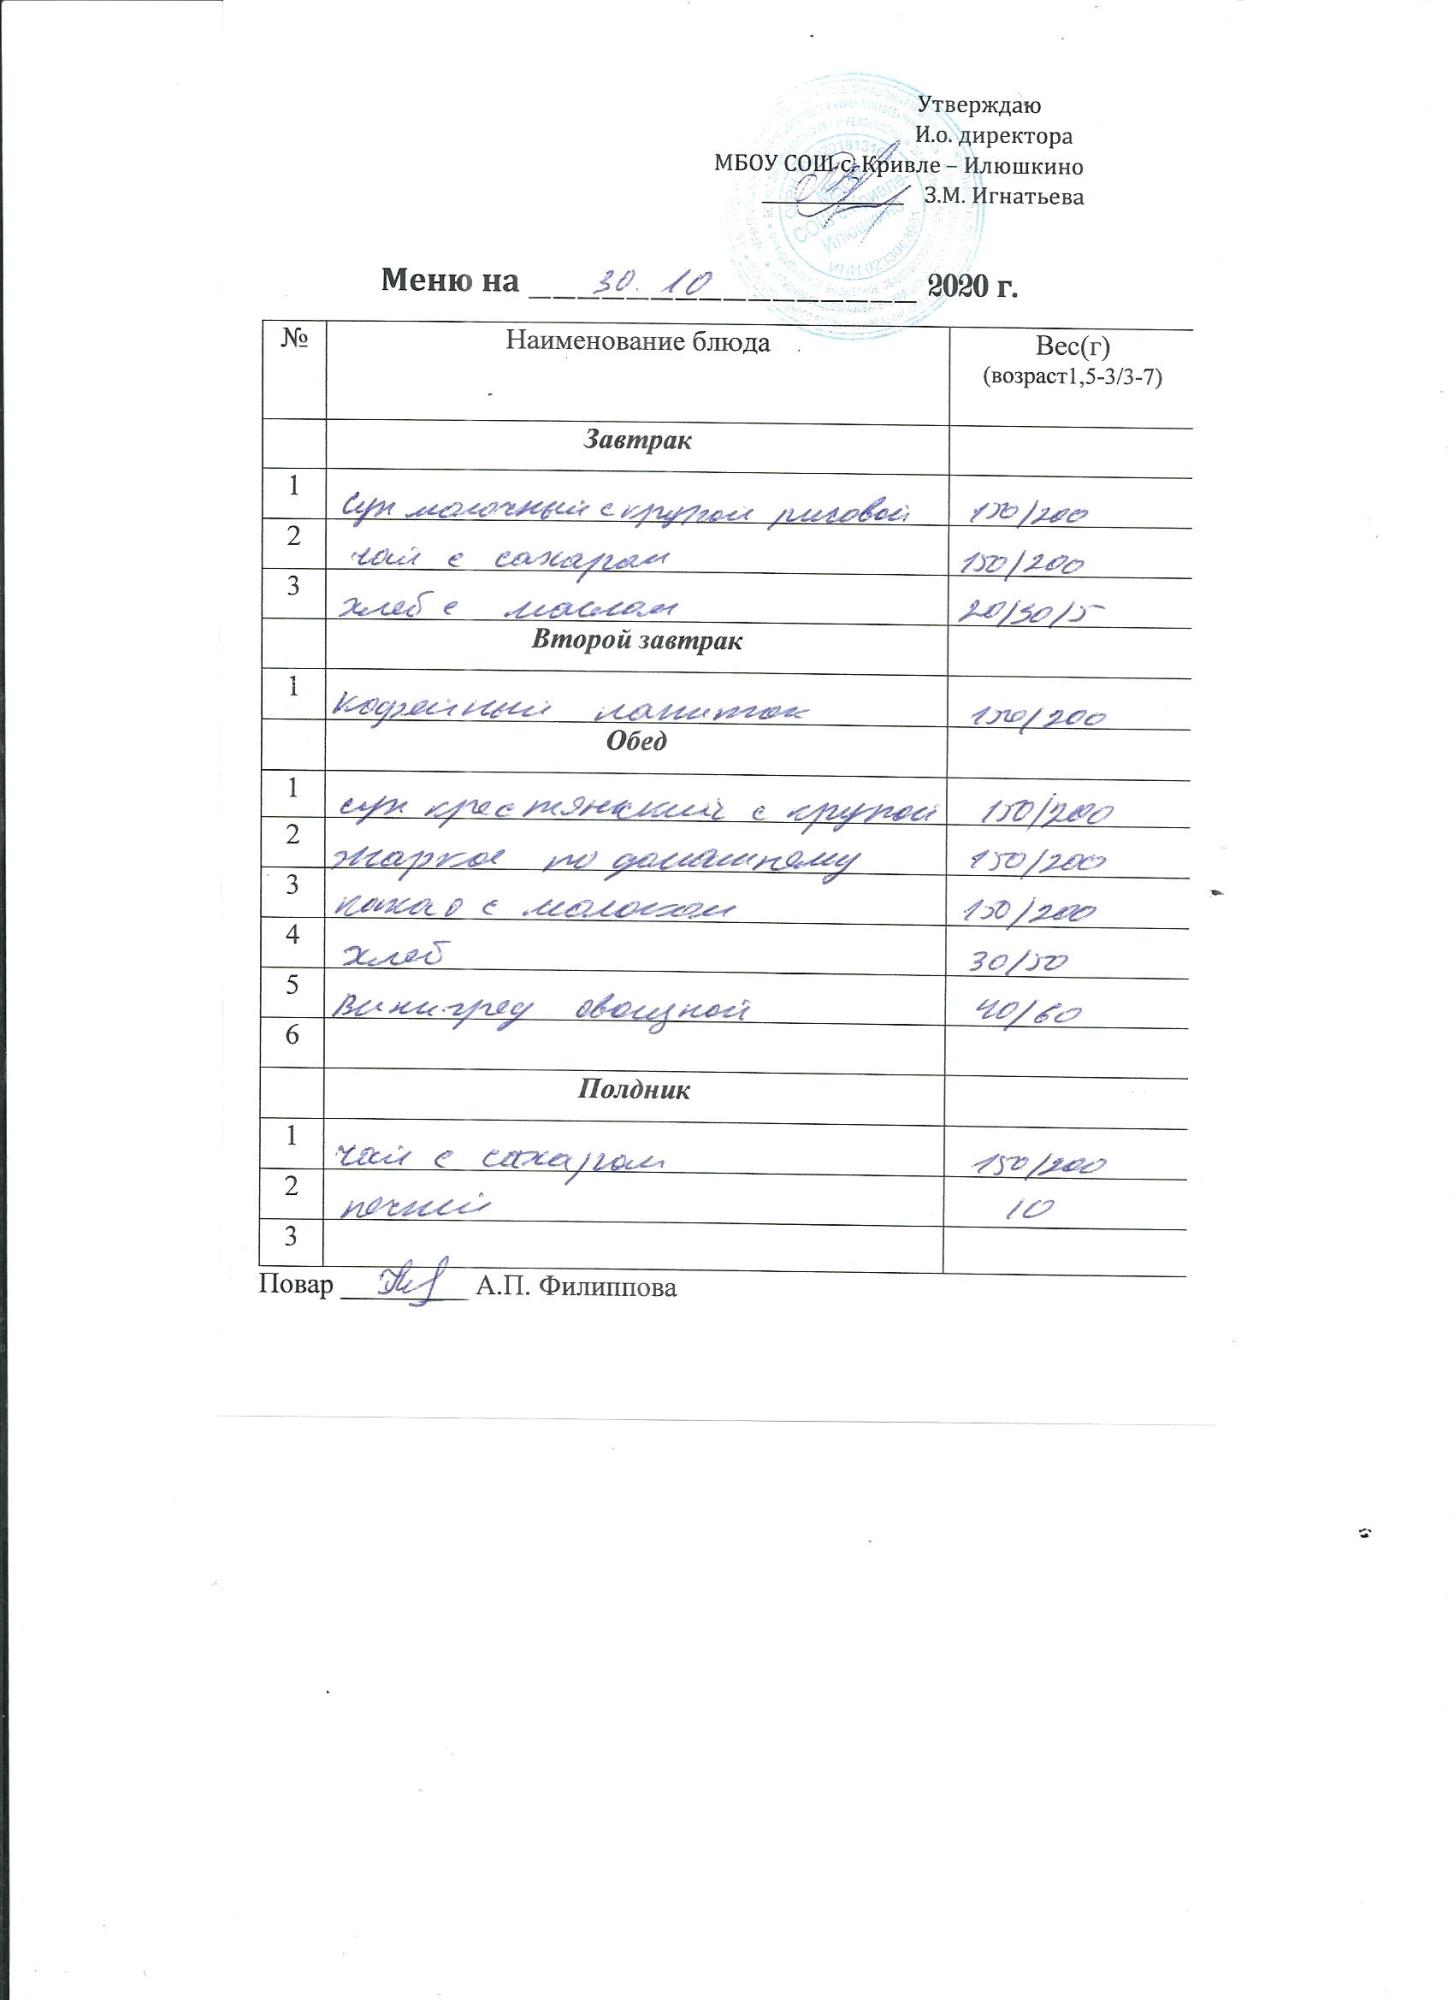 Утверждаю
И.о. директора
МБОУ СОШ с. Кривле – Илюшкино
З.М. Игнатьева
Меню на 30. 10 2020 г.
№ Наименование блюда Вес(г)
(возраст1,5-3/3-7)
Завтрак
1 Суп молочный с крупой рисовой 150/200
2 чай с сахаром 150/200
3 хлеб с маслом 20/30/5
Второй завтрак
1 Кофейный напиток 150/200
Обед
1 суп крестянский с крупой 150/200
2 Жаркое по домашнему 150/200
3 какао с молоком 150/200
4 хлеб 30/50
5 Винигред овощной 40/60
6
Полдник
1 чай с сахаром 150/200
2 печний 10
3
Повар А.П. Филиппова